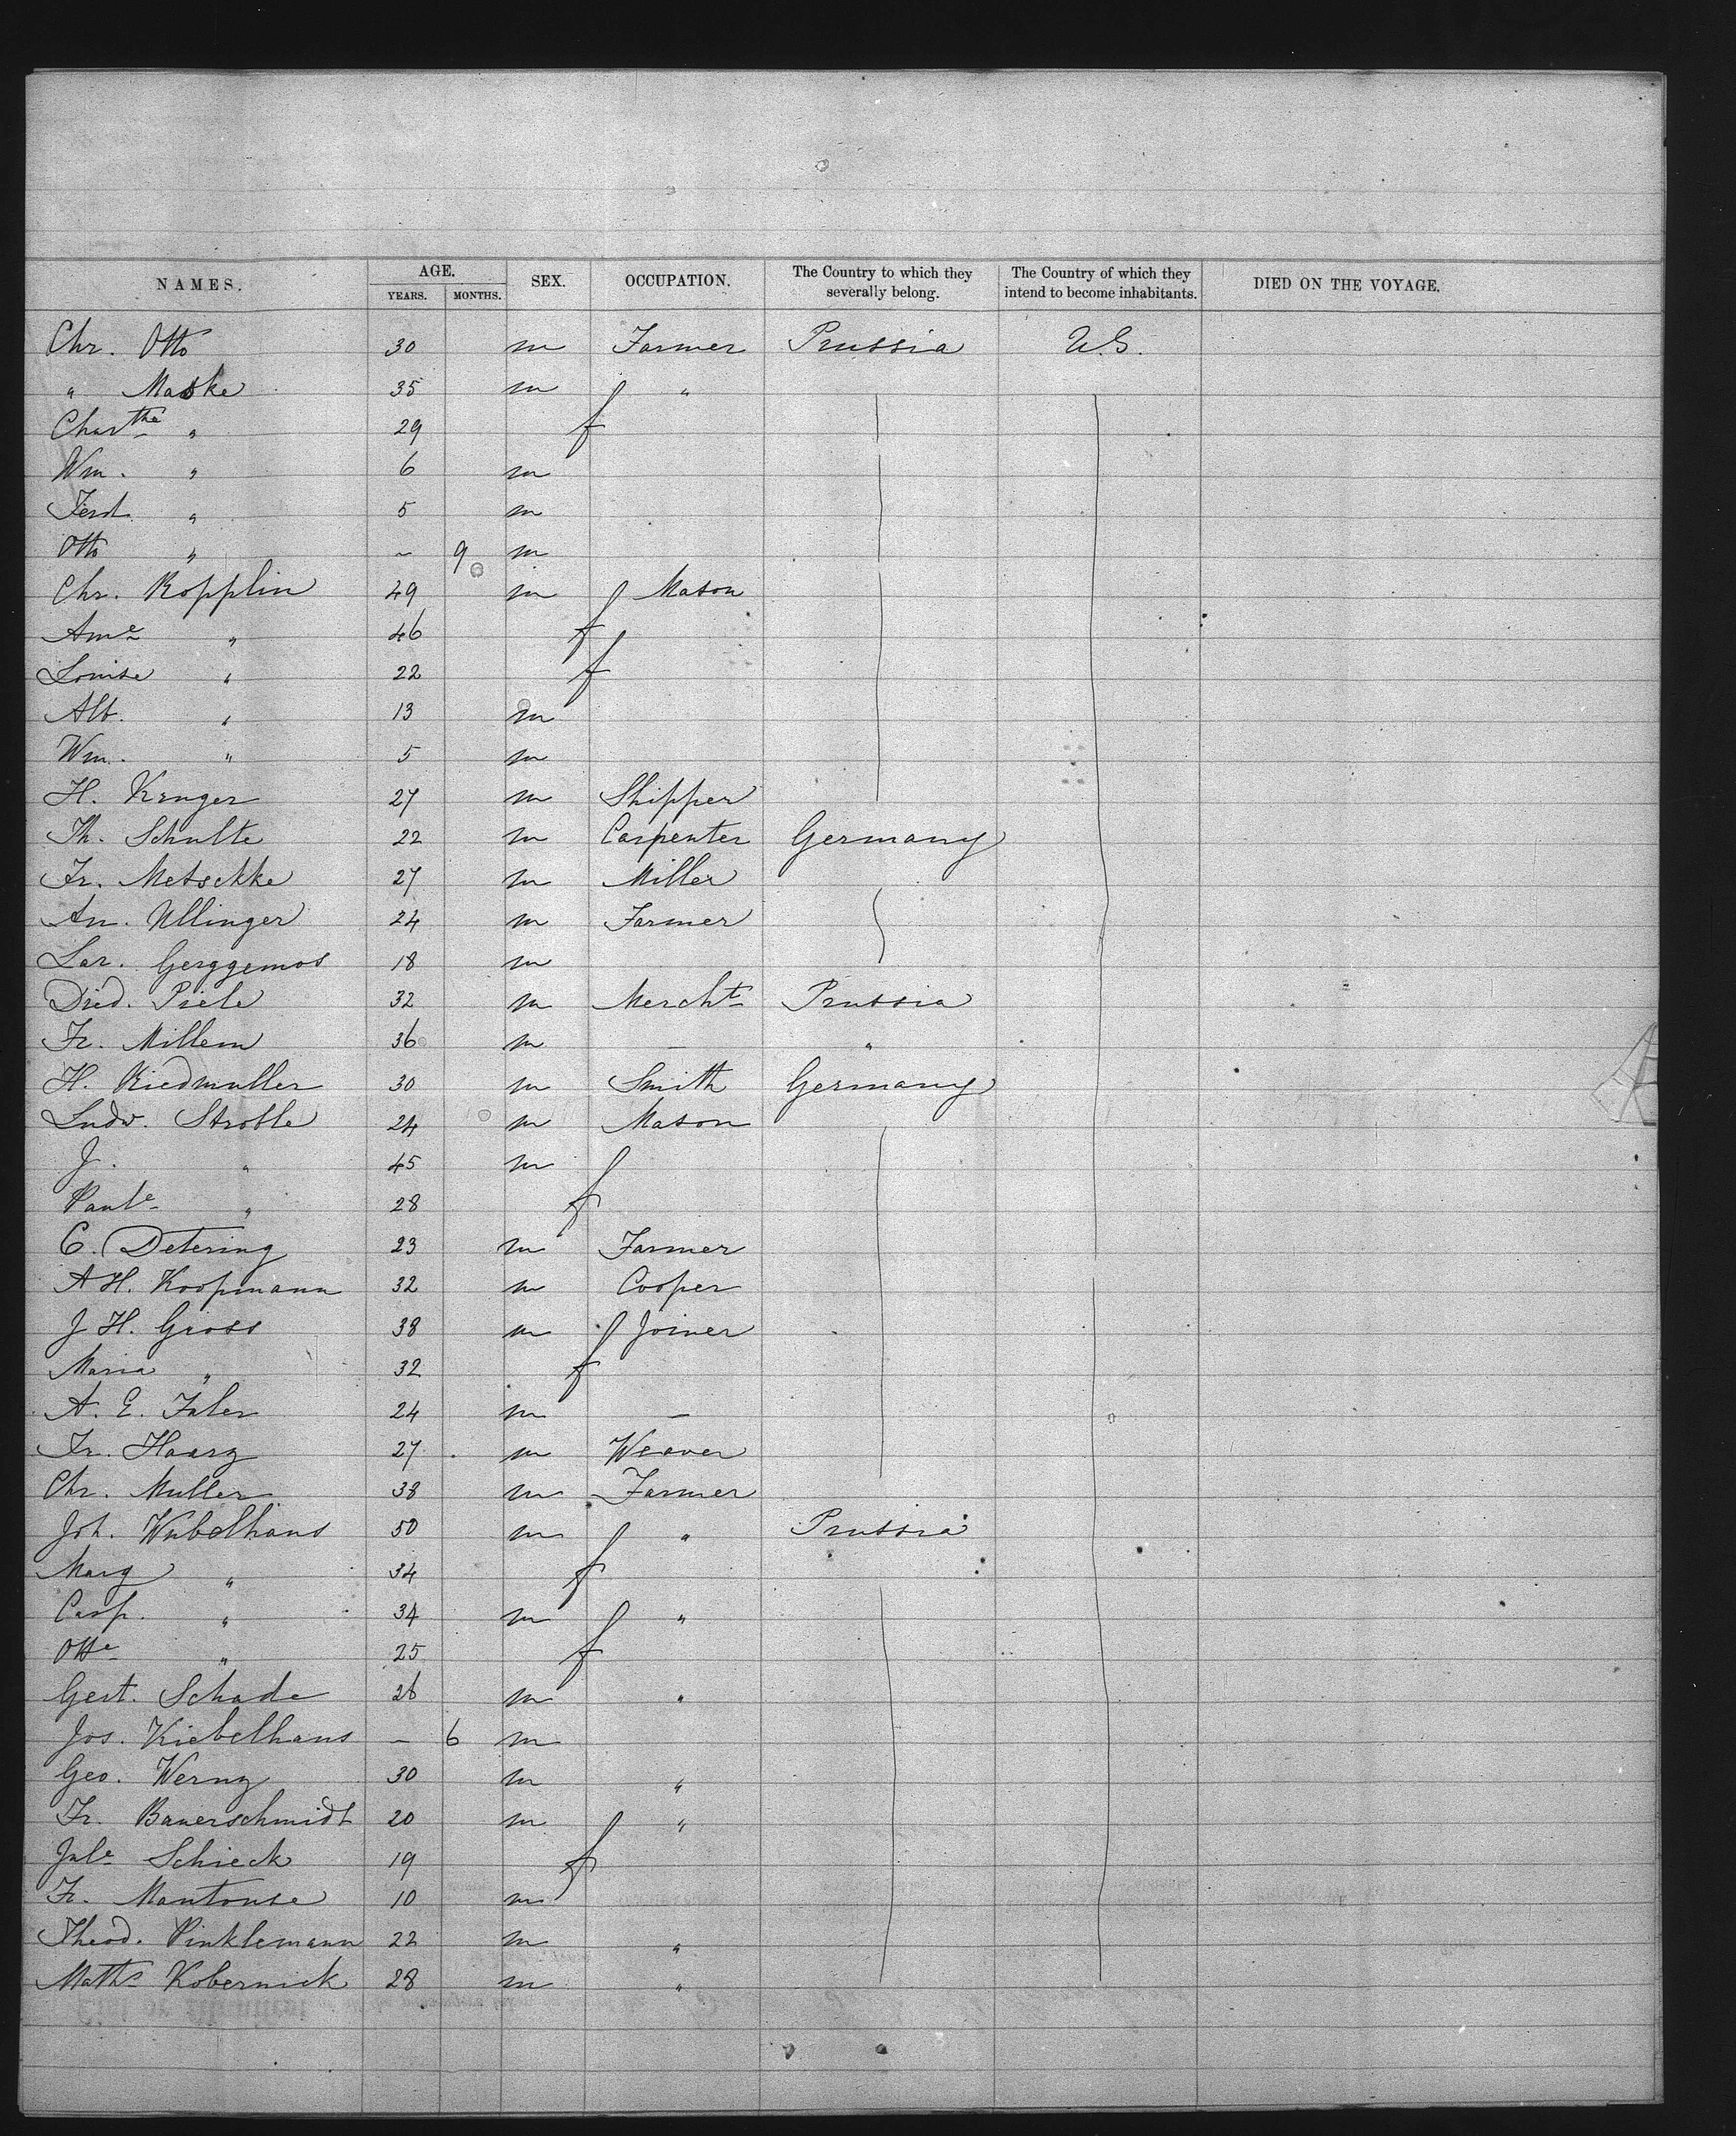 NAMES. AGE. SEX. OCCUPATION. The Country to which they severally belong. The Country of which they intend to become inhabitants. DIED ON THE VOYAGE.
YEARS. MONTHS.
Chr. Otto 30 m Farmer Prussia U.S.
" Maske 35 m "
Charthe " 29 f
Wm. " 6 m
Ferd. " 5 m
Otto " – 9 m
Chr. Kopplin 49 m Mason
Ame " 46 f
Louise " 22 f
Alb. " 13 m
Wm. " 5 m
H. Kruger 27 m Shipper
Th. Schulte 22 m Carpenter Germany
Fr. Metschke 27 m Miller
An. Ullinger 24 m Farmer
Lar. Gerggemos 18 m
Died. Piele 32 m Mercht Prussia
Fr. Millem 36 m – "
H. Riedmuller 30 m Smith Germany
Ludw. Stroble 24 m Mason
J. " 45 m
Paule " 28 f
C. Detering 23 m Farmer
A H. Koopmann 32 m Cooper
J H. Gross 38 m Joiner
Maria " 32 f
A. E. Faler 24 m –
Fr. Haarz 27 m Weaver
Chr. Muller 38 m Farmer
Joh. Wubelhaus 50 m " Prussia
Marg " 34 f
Casp. " 34 m "
Otte " 25 f
Gert. Schade 26 m "
Jos. Kiebelhaus – 6 m
Geo. Werny 30 m "
Fr. Bauerschmidt 20 m "
Jule Schieck 19 f
Fr. Mantouse 10 m
Theod. Pinklemann 22 m "
Maths Kobernick 28 m "